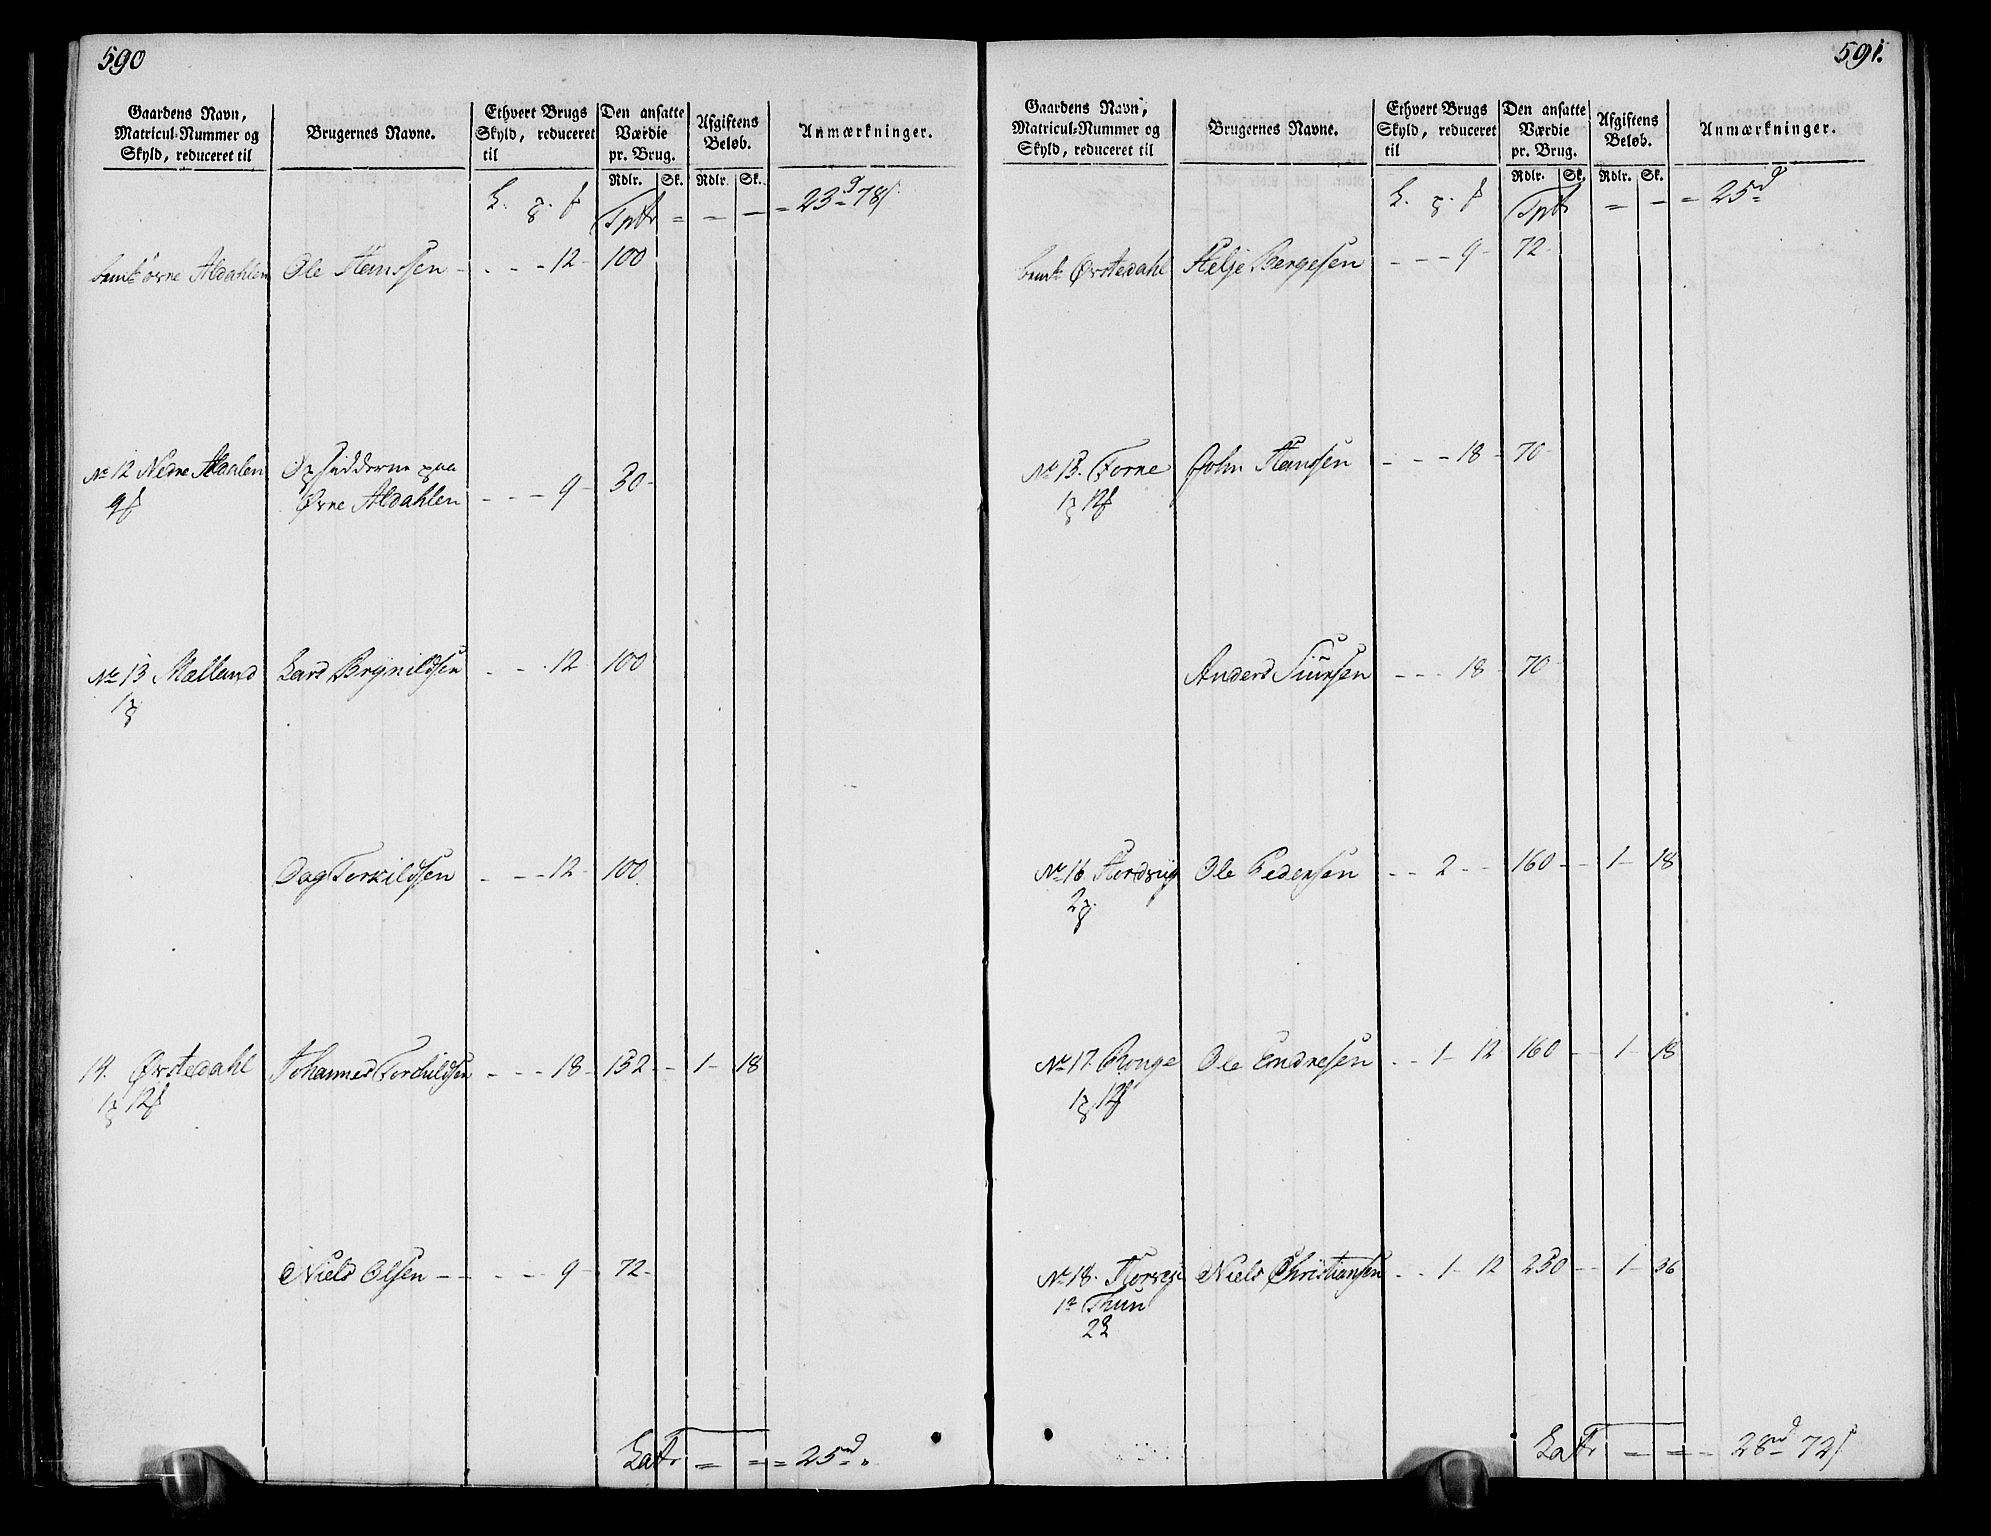 590
Gaardens Navn,
Matricul-Nummer og
Skyld, reduceret til
Brugernes Navne.
Ethvert Brugs
Skyld, reduceret
til
Den ansatte
Værdie
pr. Brug.
Afgiftens
Beløb.
Anmærkninger.
Rdlr. Sk. Rdlr. Sk.
Tptr = - - = 23d 78s
øvre Aldahlen Ole Hanssen - - - - 12 - 100
No 12 Nedre Aldahlen Opsidderne paa
Øvre Aldahlen - - - 9 - 30 -
No 13 Mælland Lars Brynildsen - - - 12 100
Dag Terkildsen - - - 12 - 100
14. Østedahl Johannes Torchildsen - - - 18 - 132 - - 1 - 18
Niels Olsen - - - - 9 - 72 -
Latr = = = 25rd
591.
Gaardens Navn,
Matricul-Nummer og
Skyld, reduceret til
Brugernes Navne.
Ethvert Brugs
Skyld, reduceret
til
Den ansatte
Værdie
pr. Brug.
Afgiftens
Beløb.
Anmærkninger.
Rdlr. Sk. Rdlr. Sk.
Tptr = - = 25rd
Østedahl Helje Bergesen - - - 9 - 72 -
No 15. Torne John Hanssen - - - 18 - 70 -
Anders Siursen - - - 18 - 70 -
No 16 Ole Pedersen - - 2 - - 160 - - 1 - 18
No 17. Ronge Ole Endresen - - 1 - 12 160 - - 1 - 18
No 18. Niels Christiansen - - 1 - 12 250 - - 1 - 36
Thun
Latr = = - 28rd 72s